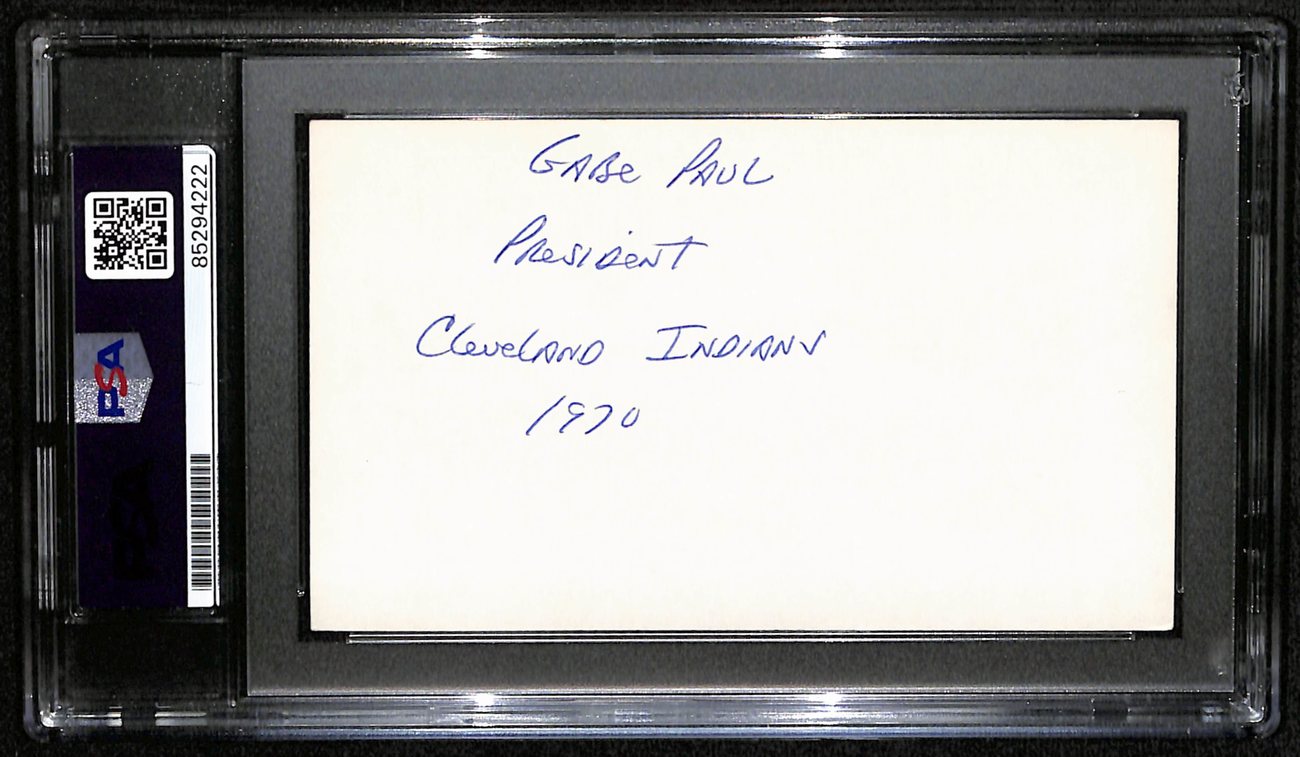 Gabe Paul
President
Cleveland Indians
1970
85294222
PSA
PSA